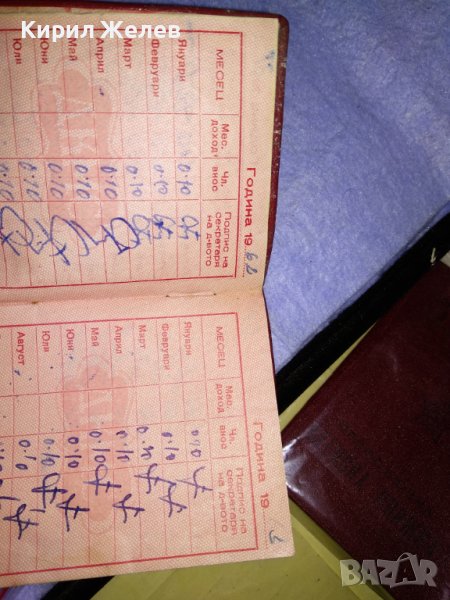 Кирил Желев
Година 19 68
МЕСЕЦ Мес. доход. Чл. внос Подпис на секретаря на д-вото
Януари 0·10
Февруари 0·10
Март 0·10
Април 0·10
Май 0·10
Юни 0·10
Юли 0·10
Година 19
МЕСЕЦ Мес. доход. Чл. внос Подпис на секретаря на д-вото
Януари 0·10
Февруари 0·10
Март 0·10
Април 0·10
Май 0·10
Юни 0·10
Юли 0·10
Август 0·10
BAZAR